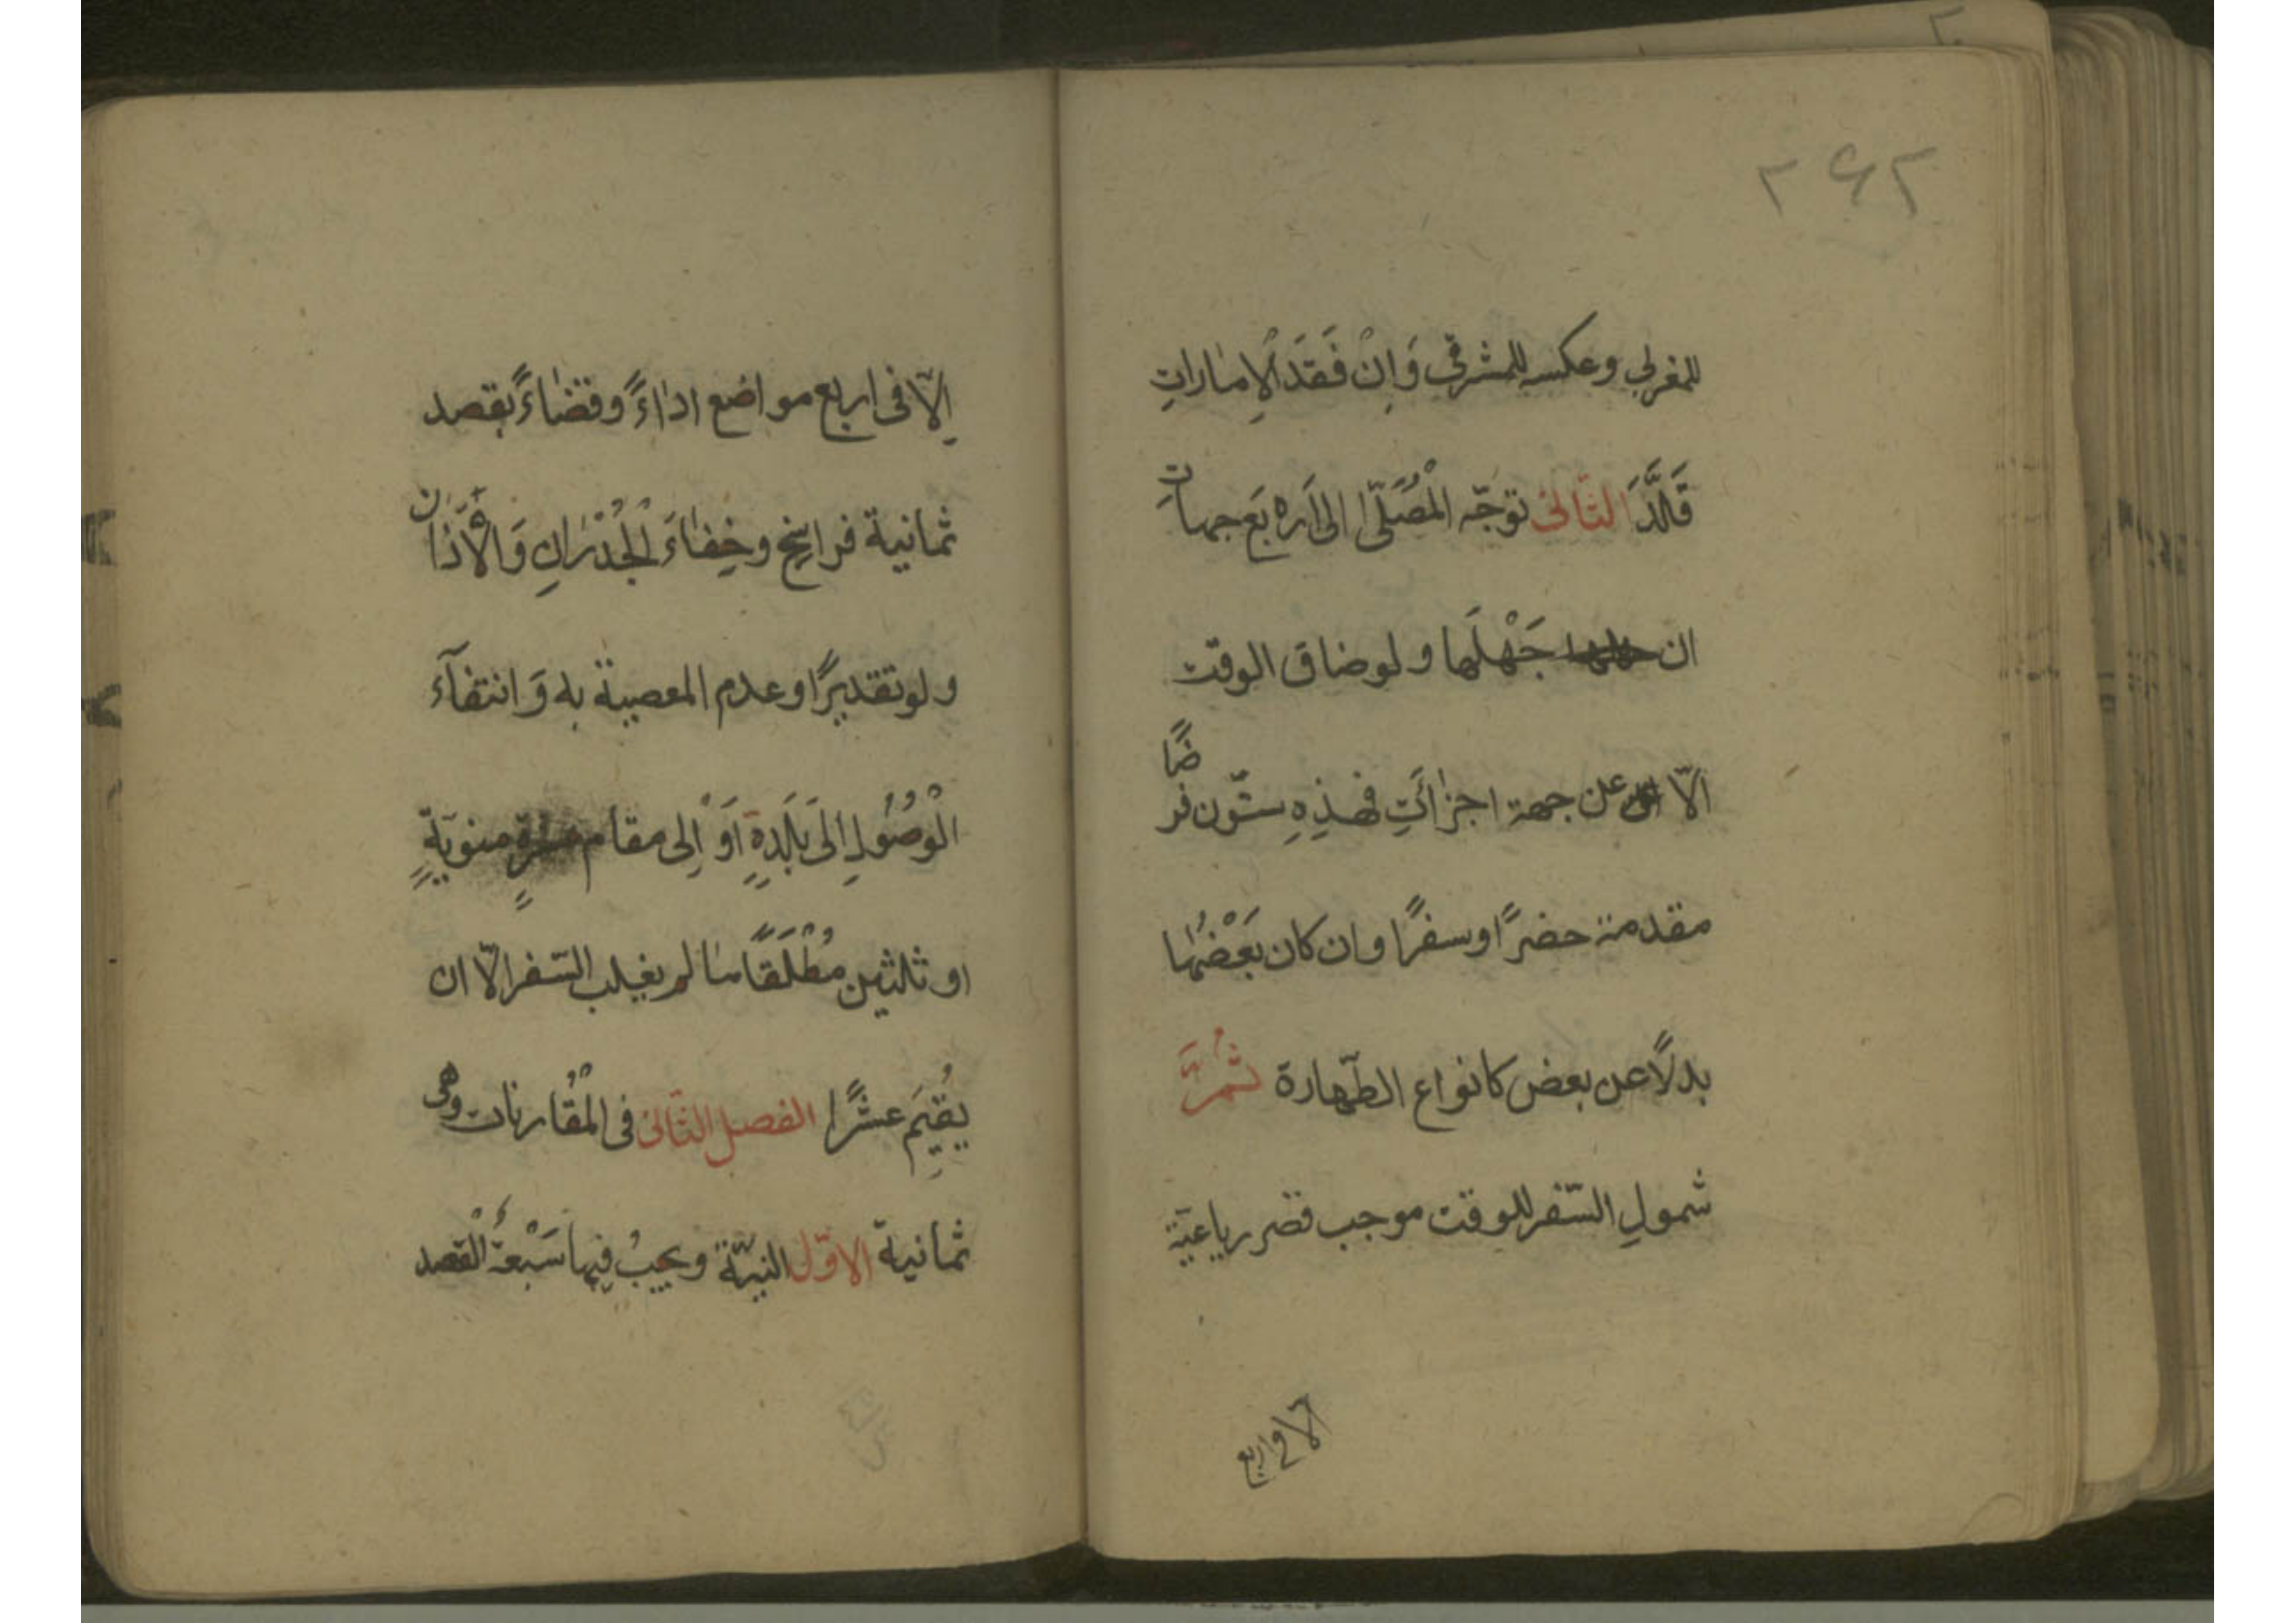 ۲۶۲
للمغربي وعكسه للمشرقي وَاِنْ فَقَدَ الْاِمٰاراتِ
قَلَّدَ الثّانى توَجّه الْمُصَلّى اِلىٰ اَرْبَع جهاتٍ
ان جَهْلَها ولوضاق الوقت
الّا عن جهة اجزأتِ فهٰذِهِ ستّون فرضًا
مقدمة حضرًا وسفرًا وان كان بَعْضُهٰا
بدلًا عن بعض كانواع الطّهارة ثُمَّ
شمولِ السّفر للوقت موجب قصر رباعيّة
الا فى اربع
اِلّا فى اربع مواضع ادٰاءً وقضٰاءً بقصد
ثمانية فراسخ وخِفٰاءَ الْجُدْرٰانِ وَالْاَذٰان
ولو تقديرًا وعدم المعصية به وَانتفآء
الْوُصُولِ اِلىٰ بَلَدِهِ اَوْ اِلى مقام منويّةٍ
او ثلثين مُطْلَقًا مٰا لم يغلب السّفر الّا ان
يُقيَم عشرًا الفصل الثّانى فى الْمُقٰارنات وهى
ثمانية الاوّل النيّة ويجبُ فيها سَبْعَةٌ القصد